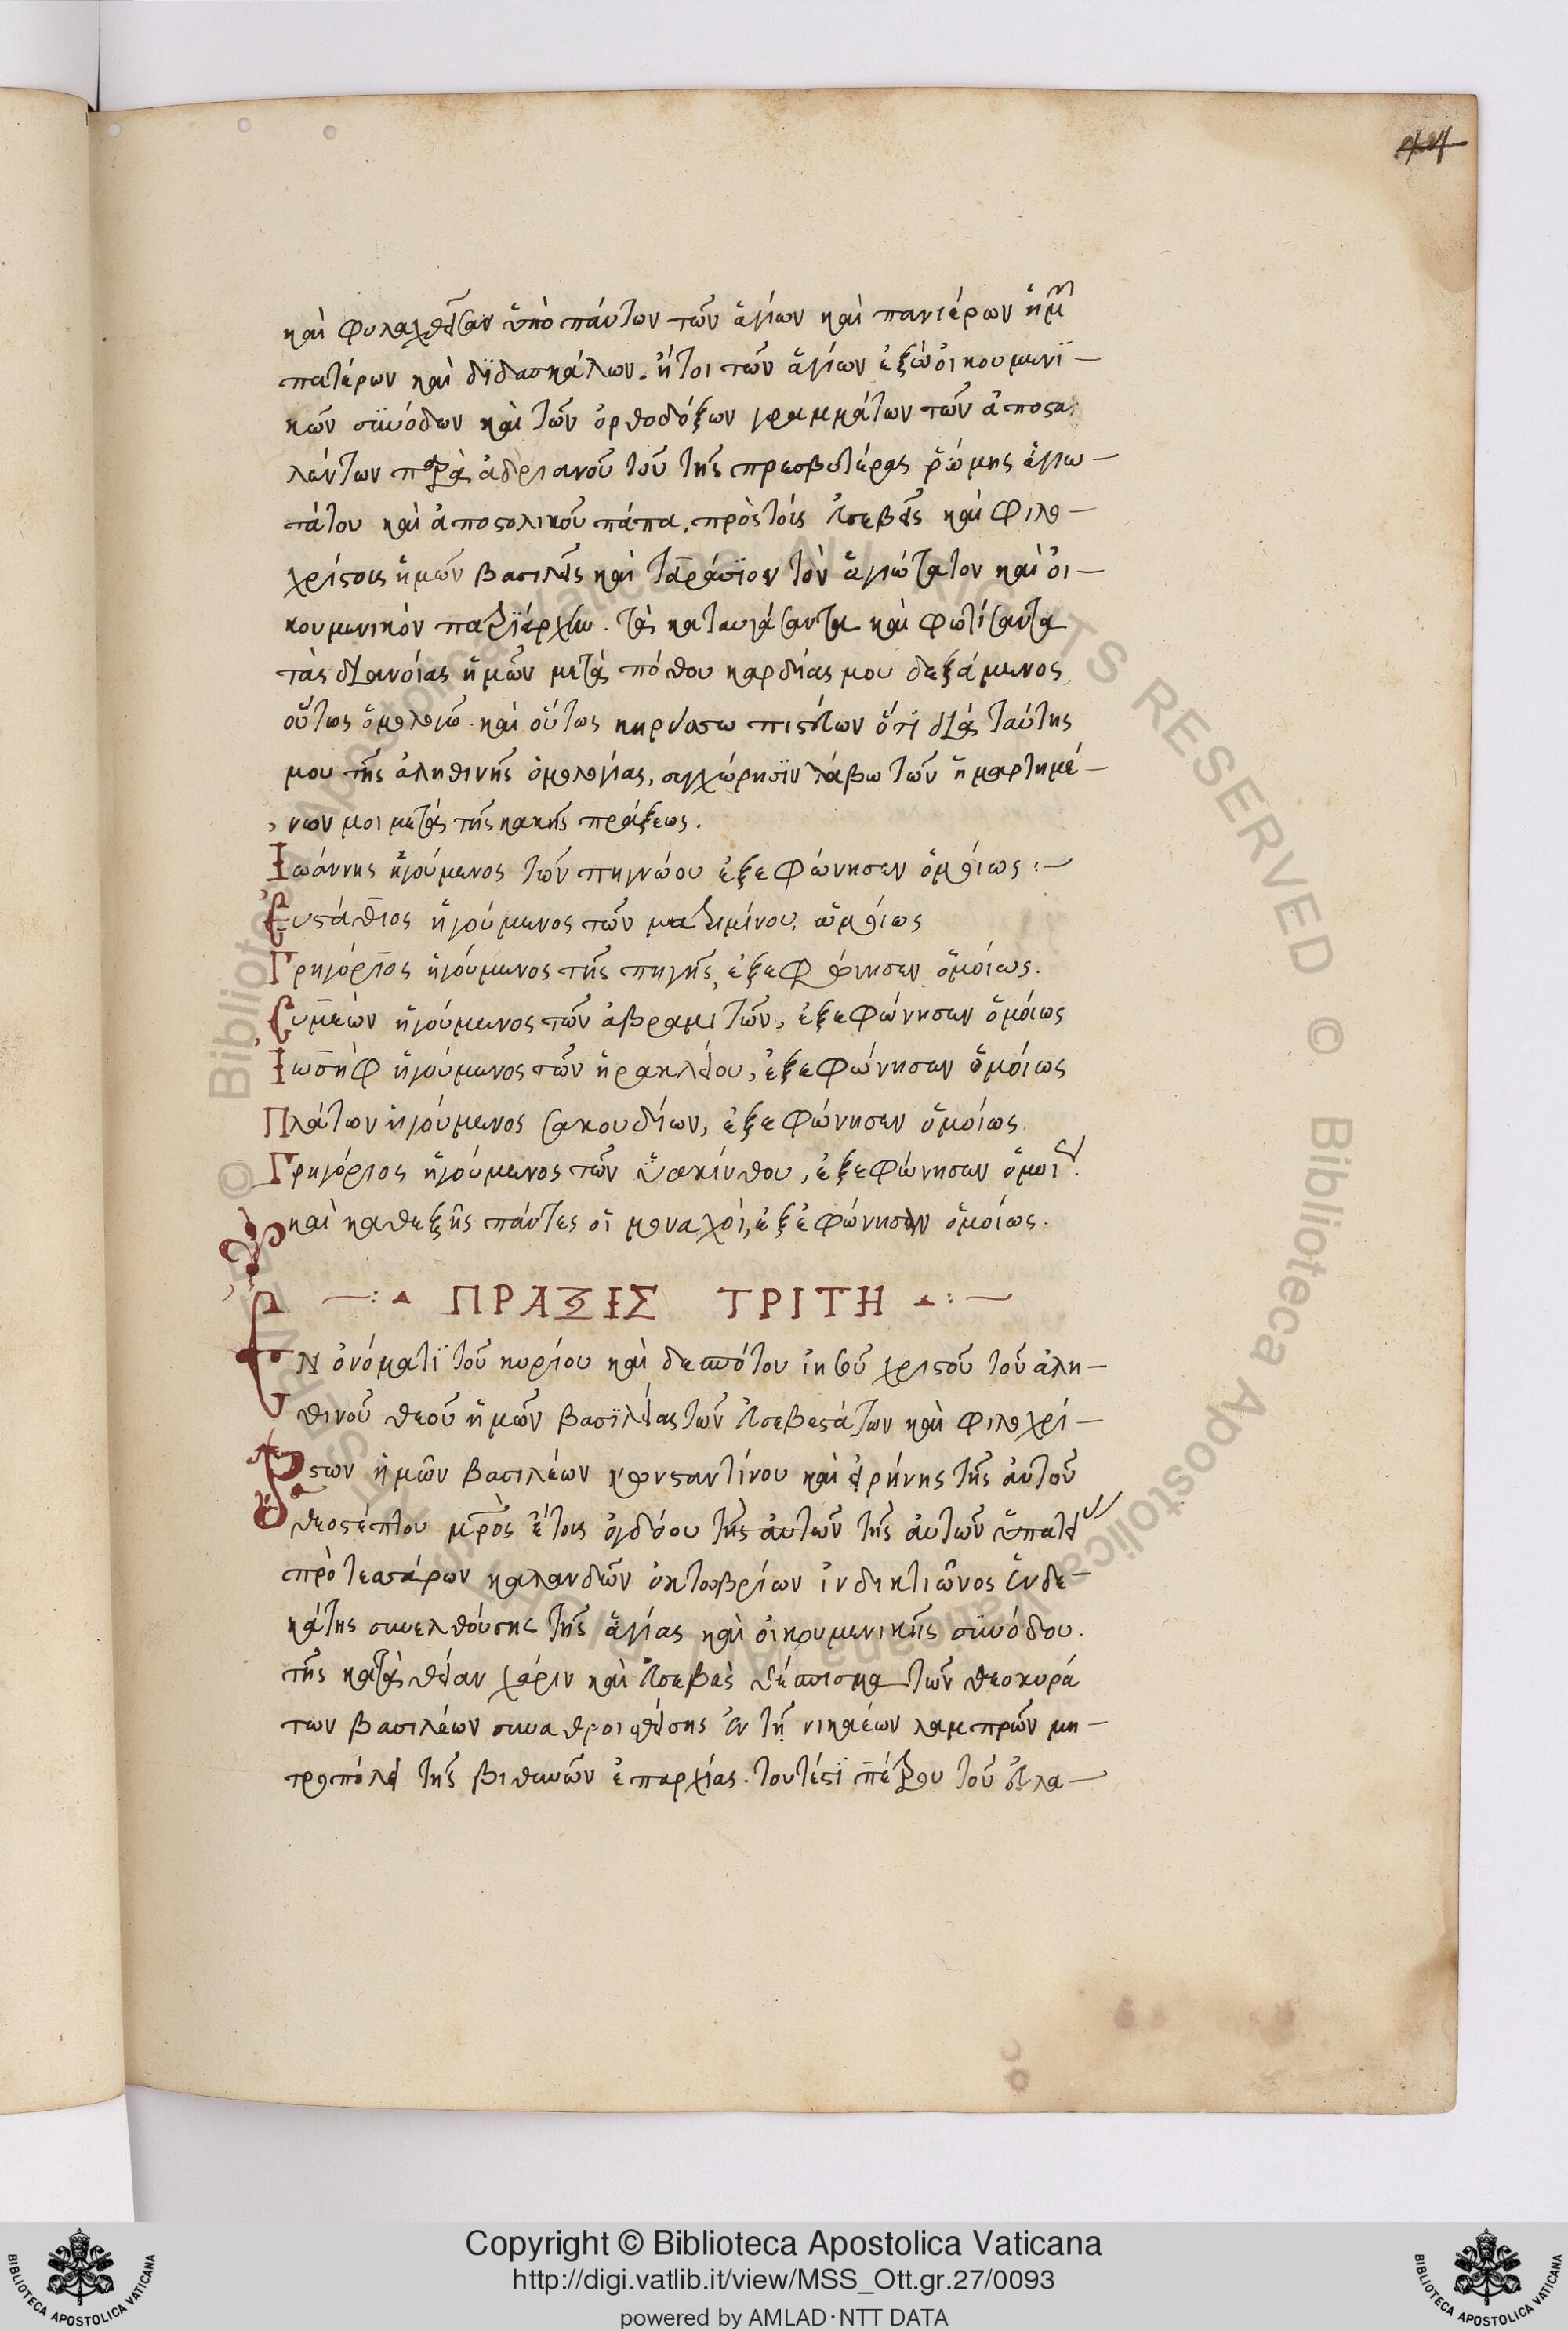 καὶ φυλαχθεῖσαν ὑπὸ πάντων τῶν ἁγίων καὶ πανιέρων ἡμῶν
πατέρων καὶ διδασκάλων. ἤτοι τῶν ἁγίων ἐξ οἰκουμενϊ-
κῶν συνόδων καὶ τῶν ὀρθοδόξων γραμμάτων τῶν ἀποστα
λέντων παρὰ ἀδριανοῦ τοῦ τῆς πρεσβυτέρας ῥώμης ἁγιω-
τάτου καὶ ἀποστολικοῦ πάπα, πρὸς τοὺς εὐσεβεῖς καὶ φιλο-
χρίστους ἡμῶν βασιλεῖς καὶ ταράσϊον τὸν ἁγιώτατον καὶ οἰ-
κουμενικὸν πατριάρχην. τὰ καταυγάσαντα καὶ φωτίσαντα
τὰς διανοίας ἡμῶν μετὰ πόθου καρδίας μου δεξάμενος,
οὕτως ὁμολογῶ. καὶ οὕτως κηρύσσω πιστεύων ὅτϊ διὰ ταύτης
μου τῆς ἀληθινῆς ὁμολογίας, συγχώρησϊν λάβω τῶν ἡμαρτημέ-
νων μοι μετὰ τῆς κακῆς πράξεως.
Ἰωάννης ἡγούμενος τῶν πηγνώου ἐξεφώνησεν ὁμοίως :-
Εὐστάθϊος ἡγούμενος τῶν μαξιμίνου, ὡμοίως
Γρηγόρϊος ἡγούμενος τῆς πηγῆς, ἐξεφώνησεν ὁμοίως.
Συμεὼν ἡγούμενος τῶν ἀβραμιτῶν, ἐξεφώνησεν ὁμοίως
Ἰωσὴφ ἡγούμενος τῶν ἡρακλείου, ἐξεφώνησεν ὁμοίως
Πλάτων ἡγούμενος σακουδίων, ἐξεφώνησεν ὁμοίως.
Γρηγόριος ἡγούμενος τῶν ὑακίνθου, ἐξεφώνησεν ὁμοίως.
καὶ καθεξῆς πάντες οἱ μοναχοὶ, ἐξεφώνησαν ὁμοίως.
ΠΡΑΞΙΣ ΤΡΙΤΗ
ΕΝ ὀνόματϊ τοῦ κυρίου καὶ δεσπότου ἰησοῦ χριστοῦ τοῦ ἀλη-
θινοῦ θεοῦ ἡμῶν βασϊλείας τῶν εὐσεβεστάτων καὶ φιλοχρί-
στων ἡμῶν βασιλέων κωνσταντίνου καὶ εἰρήνης τῆς αὐτοῦ
θεοστέπτου μρ̅ος ἔτους ὀγδόου τῆς αὐτῶν τῆς αὐτῶν ὑπατείας
πρὸ τεσσάρων καλανδῶν ὀκτωβρίων ἰνδικτιῶνος ἑνδε-
κάτης συνελθούσης τῆς ἁγίας καὶ οἰκουμενικῆς συνόδου.
τῆς κατὰ θείαν χάριν καὶ εὐσεβὲς θέσπισμα τῶν θεοκυρώ
των βασιλέων συναθροισθείσης ἐν τῇ νικαέων λαμπρῶν μη-
τροπόλει τῆς βιθυνῶν ἐπαρχίας. τουτέστϊ πέτρου τοῦ εὐλα-
Copyright © Biblioteca Apostolica Vaticana
http://digi.vatlib.it/view/MSS_Ott.gr.27/0093
powered by AMLAD·NTT DATA